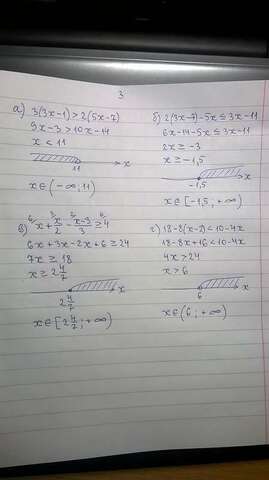 3
а) 3(3x-1) > 2(5x-7)
9x-3 > 10x-14
x < 11
11 x
x∈(-∞; 11)
б) 2(3x-7)-5x ≤ 3x-11
6x-14-5x ≤ 3x-11
2x ≥ -3
x ≥ -1,5
-1,5 x
x∈[-1,5; +∞)
в) ⁶x + ³x/2 - ²x-3/3 ≥ ⁶4
6x+3x-2x+6 ≥ 24
7x ≥ 18
x ≥ 2 4/7
2 4/7 x
x∈[2 4/7; +∞)
г) 18-8(x-2) < 10-4x
18-8x+16 < 10-4x
4x > 24
x > 6
6 x
x∈(6; +∞)